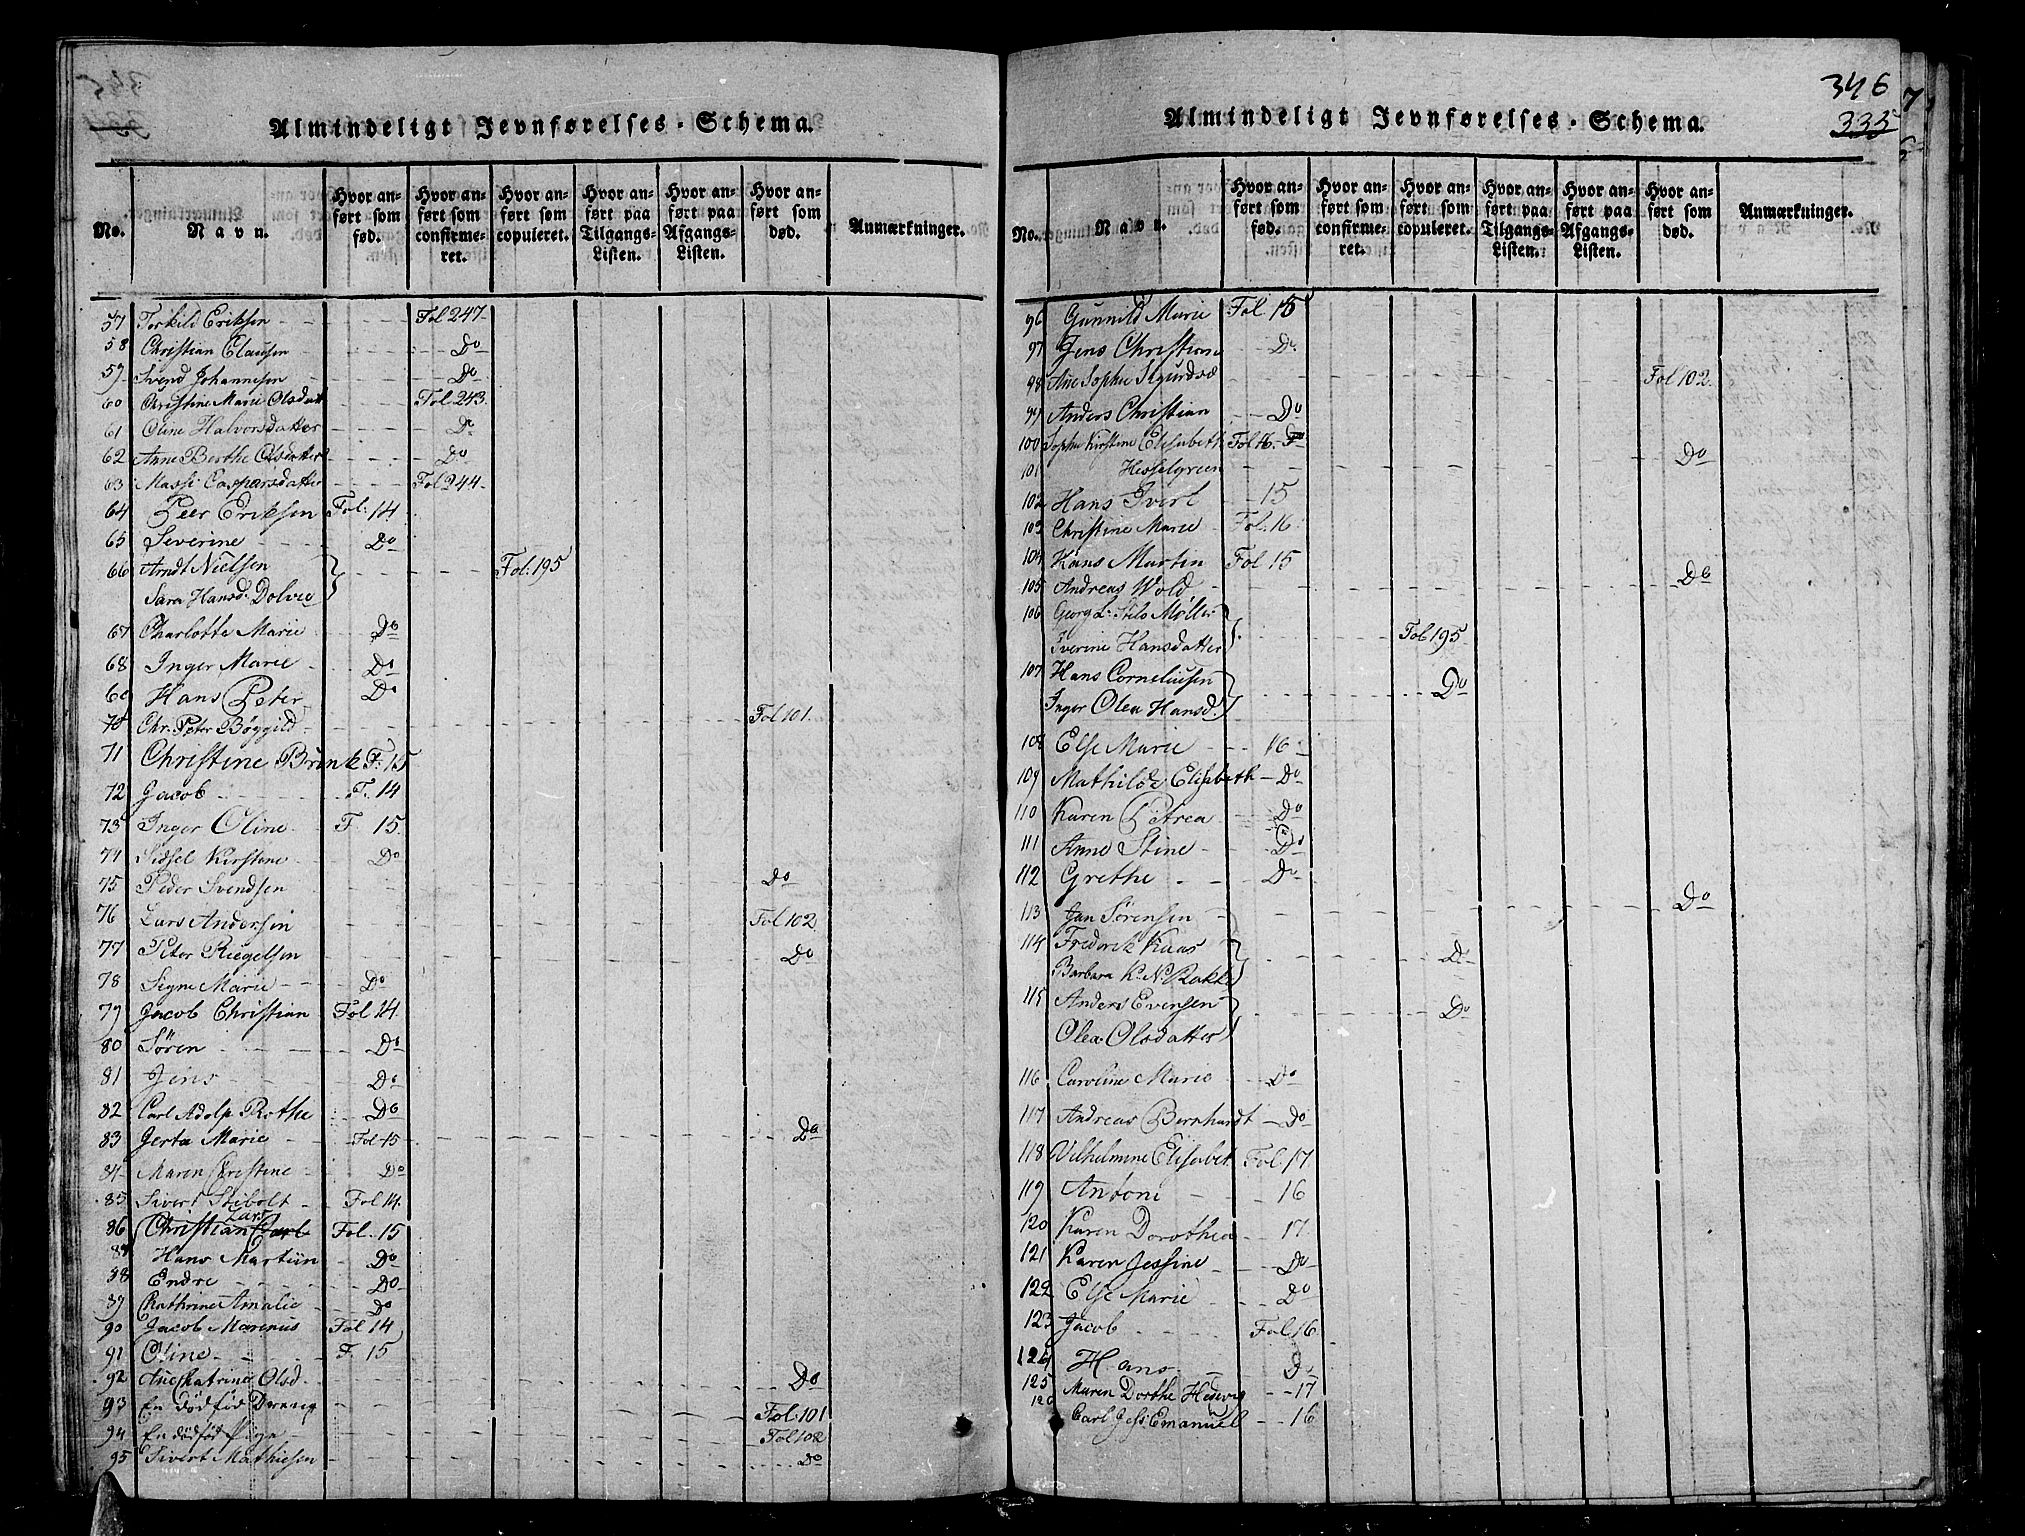 Almindeligt Jevnførelses-Schema.
No. Navn. Hvor anført som fød. Hvor anført som confirmeret. Hvor anført som copuleret. Hvor anført paa Tilgangs-Listen. Hvor anført paa Afgangs-Listen. Hvor anført som død. Anmærkninger.
57 Torkild Eriksen Fol 247.
58 Christian Clausen Do
59 Svend Johannesen Do
60 Christine Marie Olsdatt Fol 243.
61 Oline Halvorsdatter Do
62 Anne Berthe Olsdatter Do
63 Massi Caspersdatter Fol 244.
64 Peer Eriksen Fol: 14.
65 Severine Do
66 Arndt Nielsen Fol: 195
Sara Hansd: Dolvie
67 Charlotte Marie Do
68 Inger Marie Do
60 Hans Peter Do
70 Chr. Peter Bøggild Fol 101.
71 Christine Brink F. 15
72 Jacob F. 14
73 Inger Oline F. 15.
74 Sidsel Kirstine Do
75 Peder Svendsen Do
76 Lars Andersen Fol 102
77 Peter Riegelsen Do
78 Signe Marie Do
79 Jacob Christian Fol 14.
80 Søren Do
81 Jens Do
82 Carl Adolp Rothe Do
83 Jerta Marie Fol 15 Do
84 Maren Christine Do
85 Sivert Stibolt Fol 14.
Lars
86 Christian Carl Fol. 15
87 Hans Martiin Do
88 Endre Do
89 Cathrine Amalie Do
90 Jacob Marenus Fol 14
91 Oline F. 15
92 Ane Catrine Olsd. Do
93 En dödföd Dreng Fol: 101
94 En dödföd Pige Fol 102
95 Sivert Mathiesen Do
346
335
Almindeligt Jevnførelses-Schema.
No. Navn. Hvor anført som fød. Hvor anført som confirmeret. Hvor anført som copuleret. Hvor anført paa Tilgangs-Listen. Hvor anført paa Afgangs-Listen. Hvor anført som død. Anmærkninger.
96 Gunnild Marie Fol. 15
97 Jens Christian Do
98 Ane Sophie Fol 102.
99 Anders Christian Do
100 Sophie Kirstine Elisabeth Fol 16.
101 Hesselgreen Do
102 Hans Iverl 15
103 Christine Marie Fol. 16
104 Hans Martin Fol 15
105 Andreas Wold Do
106 Georg L. Møller Fol 195
Iverine Hansdatter
107 Hans Corneliusen Do
Inger Olea Hansd.
108 Else Marie 16
109 Mathilde Elisabeth Do
110 Karen Petrea Do
111 Anne Stine Do
112 Grethe Do
113 Jan Sørensen Do
114 Frederik Kaas Do
Barbara K. N. Rokke
115 Anders Evensen Do
Olea Olsdatter
116 Caroline Marie Do
117 Andreas Bernhardt Do
118 Vilhelmine Elisabet Fol. 17.
119 Antoni 16
120 Karen Dorothea 17.
121 Karen Jessine Do
122 Else Marie Do
123 Jacob Fol. 16.
124 Hans Do
125 Maren Dorthe Hedvig 17
126 Carl Jess Emanuel 16